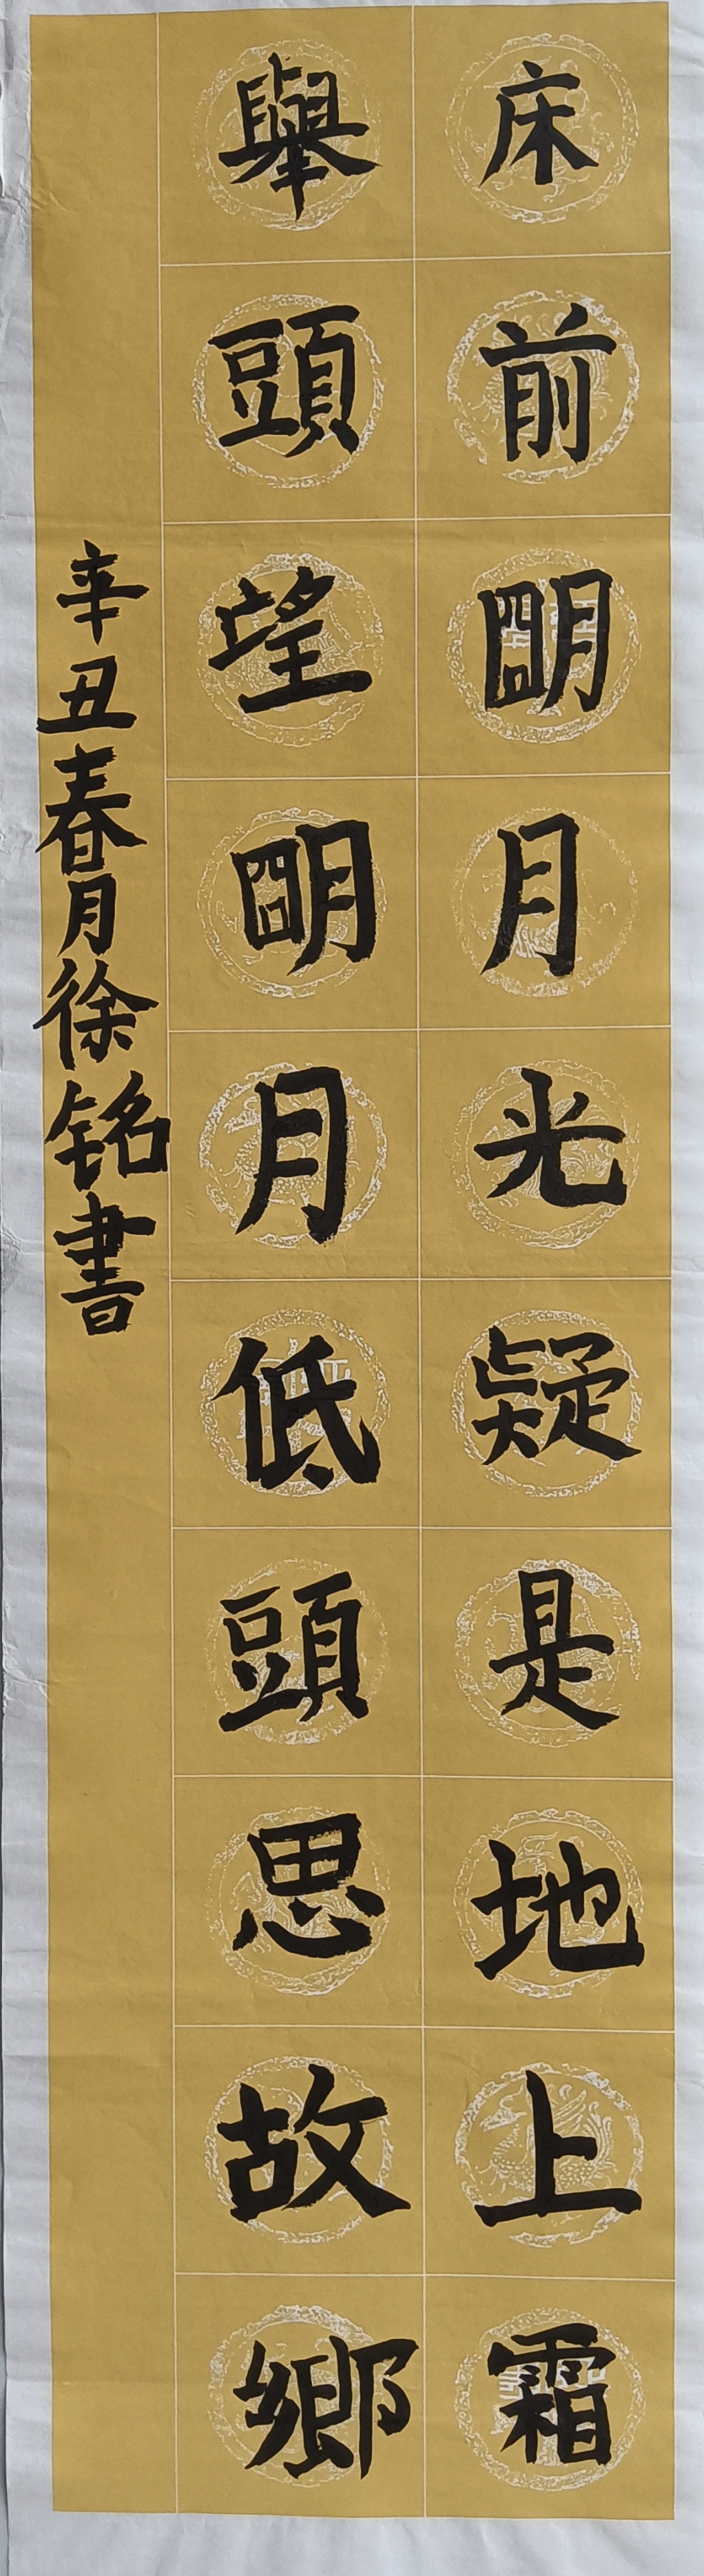 床前明月光疑是地上霜
舉頭望明月低頭思故鄉
辛丑春月徐铭書